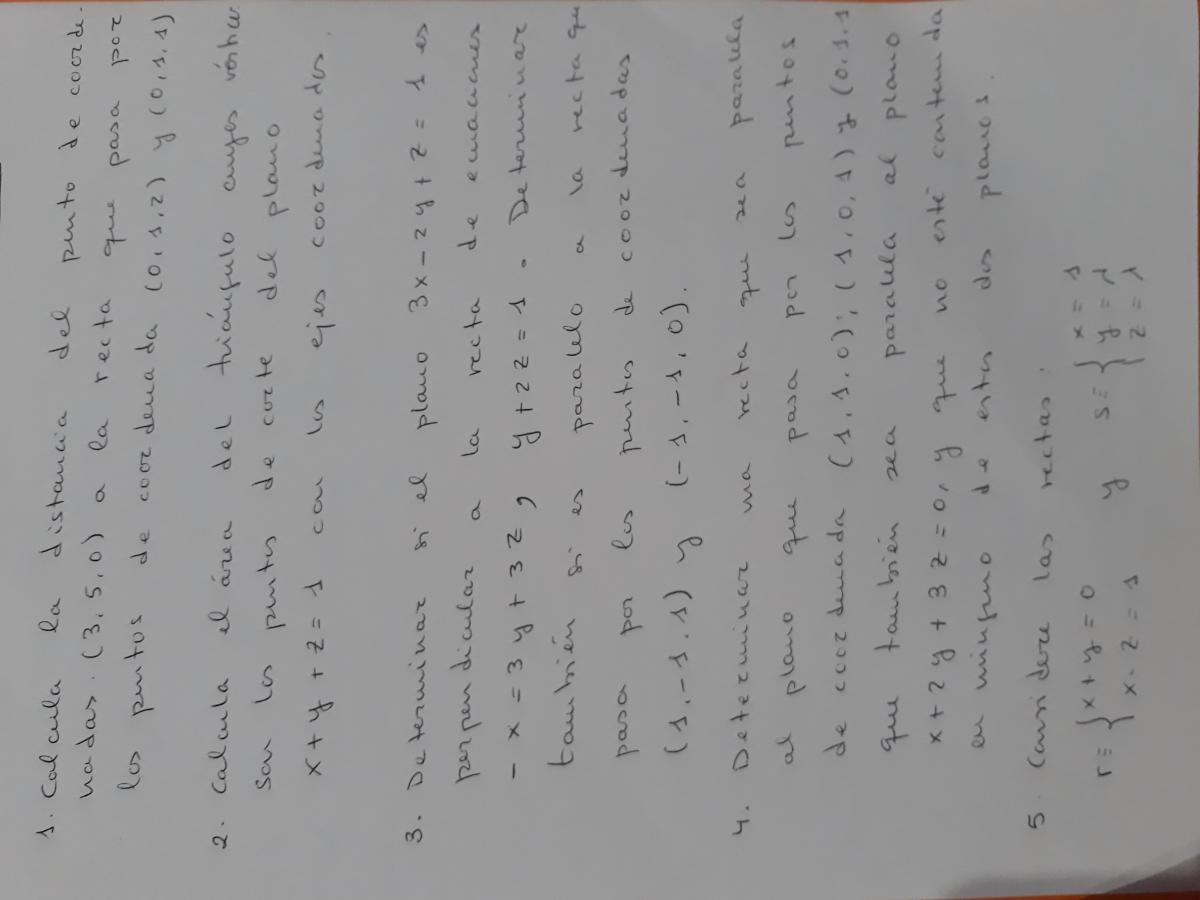 1. Calcula la distancia del punto de coorde.
nadas. (3,5,0) a la recta que pasa por
los puntos de coordenada (0,1,2) y (0,1,1)
2. Calcula el área del triángulo cuyos vértices
son los puntos de corte del plano
x+y+z=1 con los ejes coordenados.
3. Determinar si el plano 3x-2y+z=1 es
perpendicular a la recta de ecuaciones
-x=3y+3z, y+2z=1. Determinar
también si es paralelo a la recta que
pasa por los puntos de coordenadas
(1,-1.1) y (-1,-1,0).
4. Determinar una recta que sea paralela
al plano que pasa por los puntos
de coordenada (1,1,0); (1,0,1) y (0.1.1
que también sea paralela al plano
x+2y+3z=0, y que no esté contenida
en ninguno de estos dos planos.
5. Considere las rectas:
r≡ { x+y=0 y s≡ { x=1
x-z=1 y=1
z=1